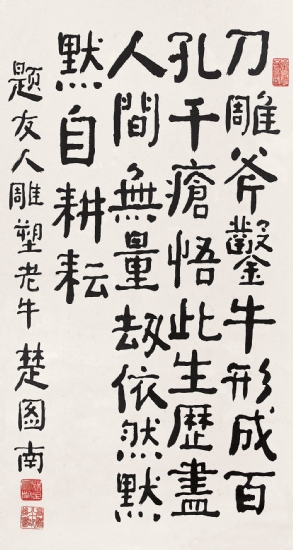 刀雕斧鑿牛形成百
孔千瘡悟此生歷盡
人間無量劫依然默
默自耕耘
題友人雕塑老牛 楚图南